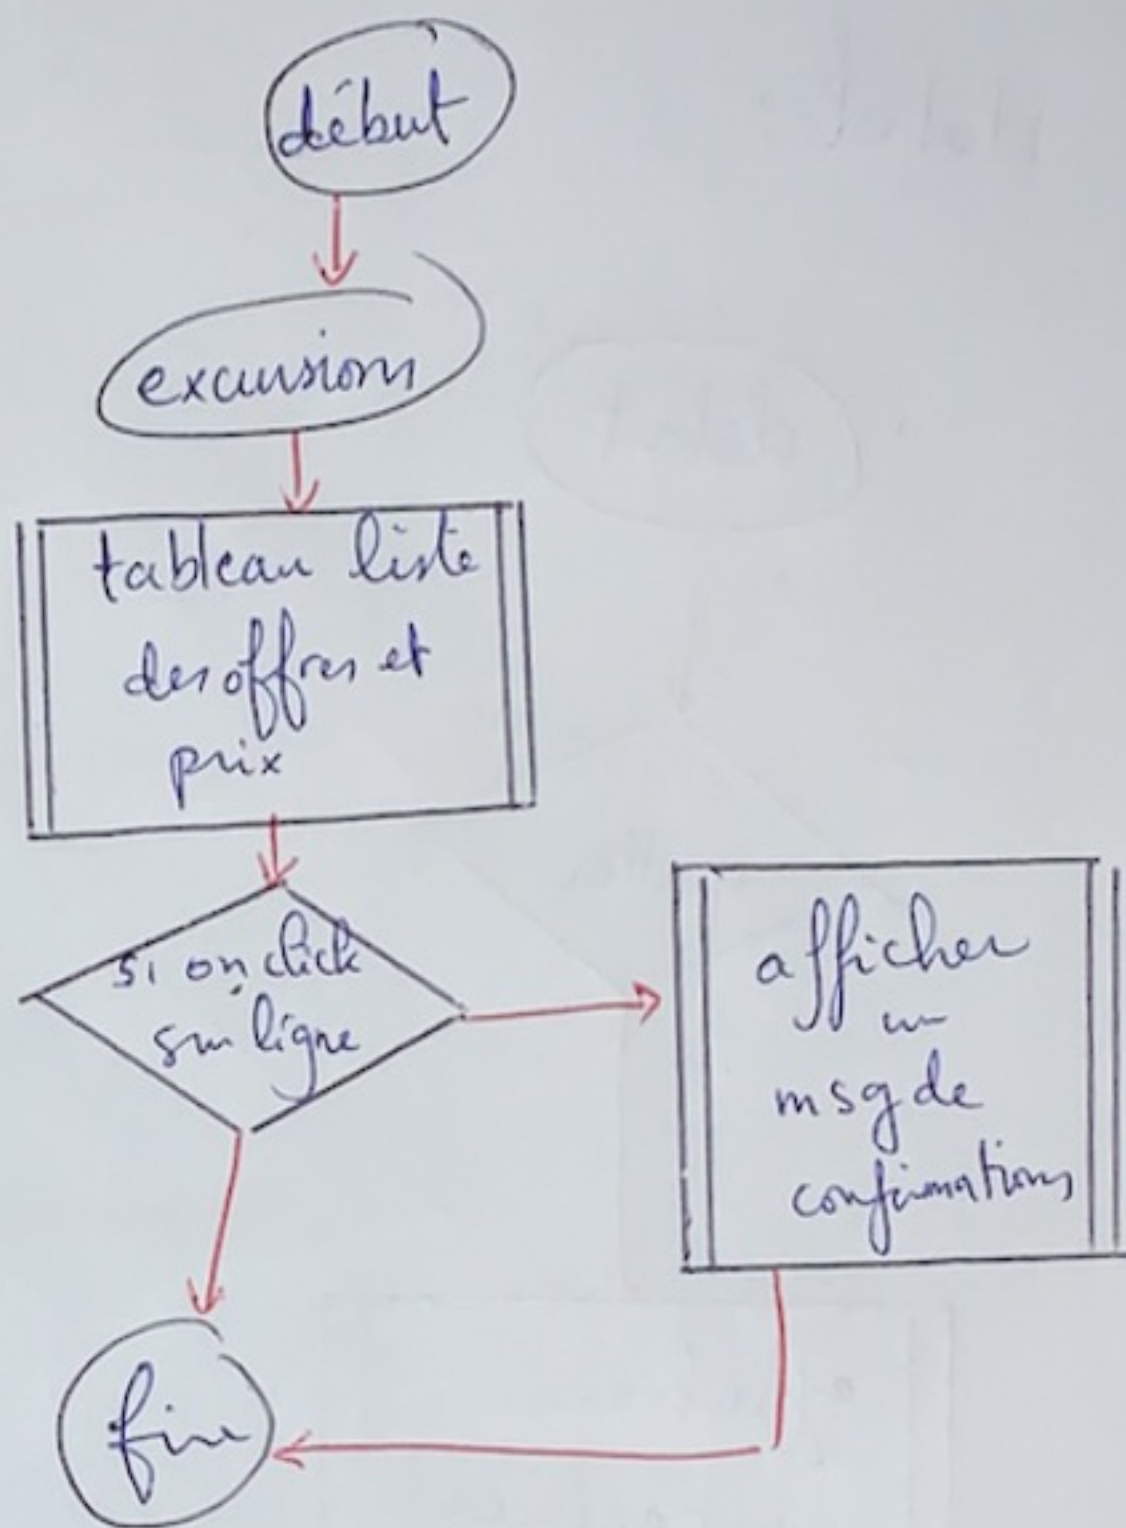 début
excursions
tableau liste
des offres et
prix
si on click
sur ligne
afficher
un
msg de
confirmations
fin